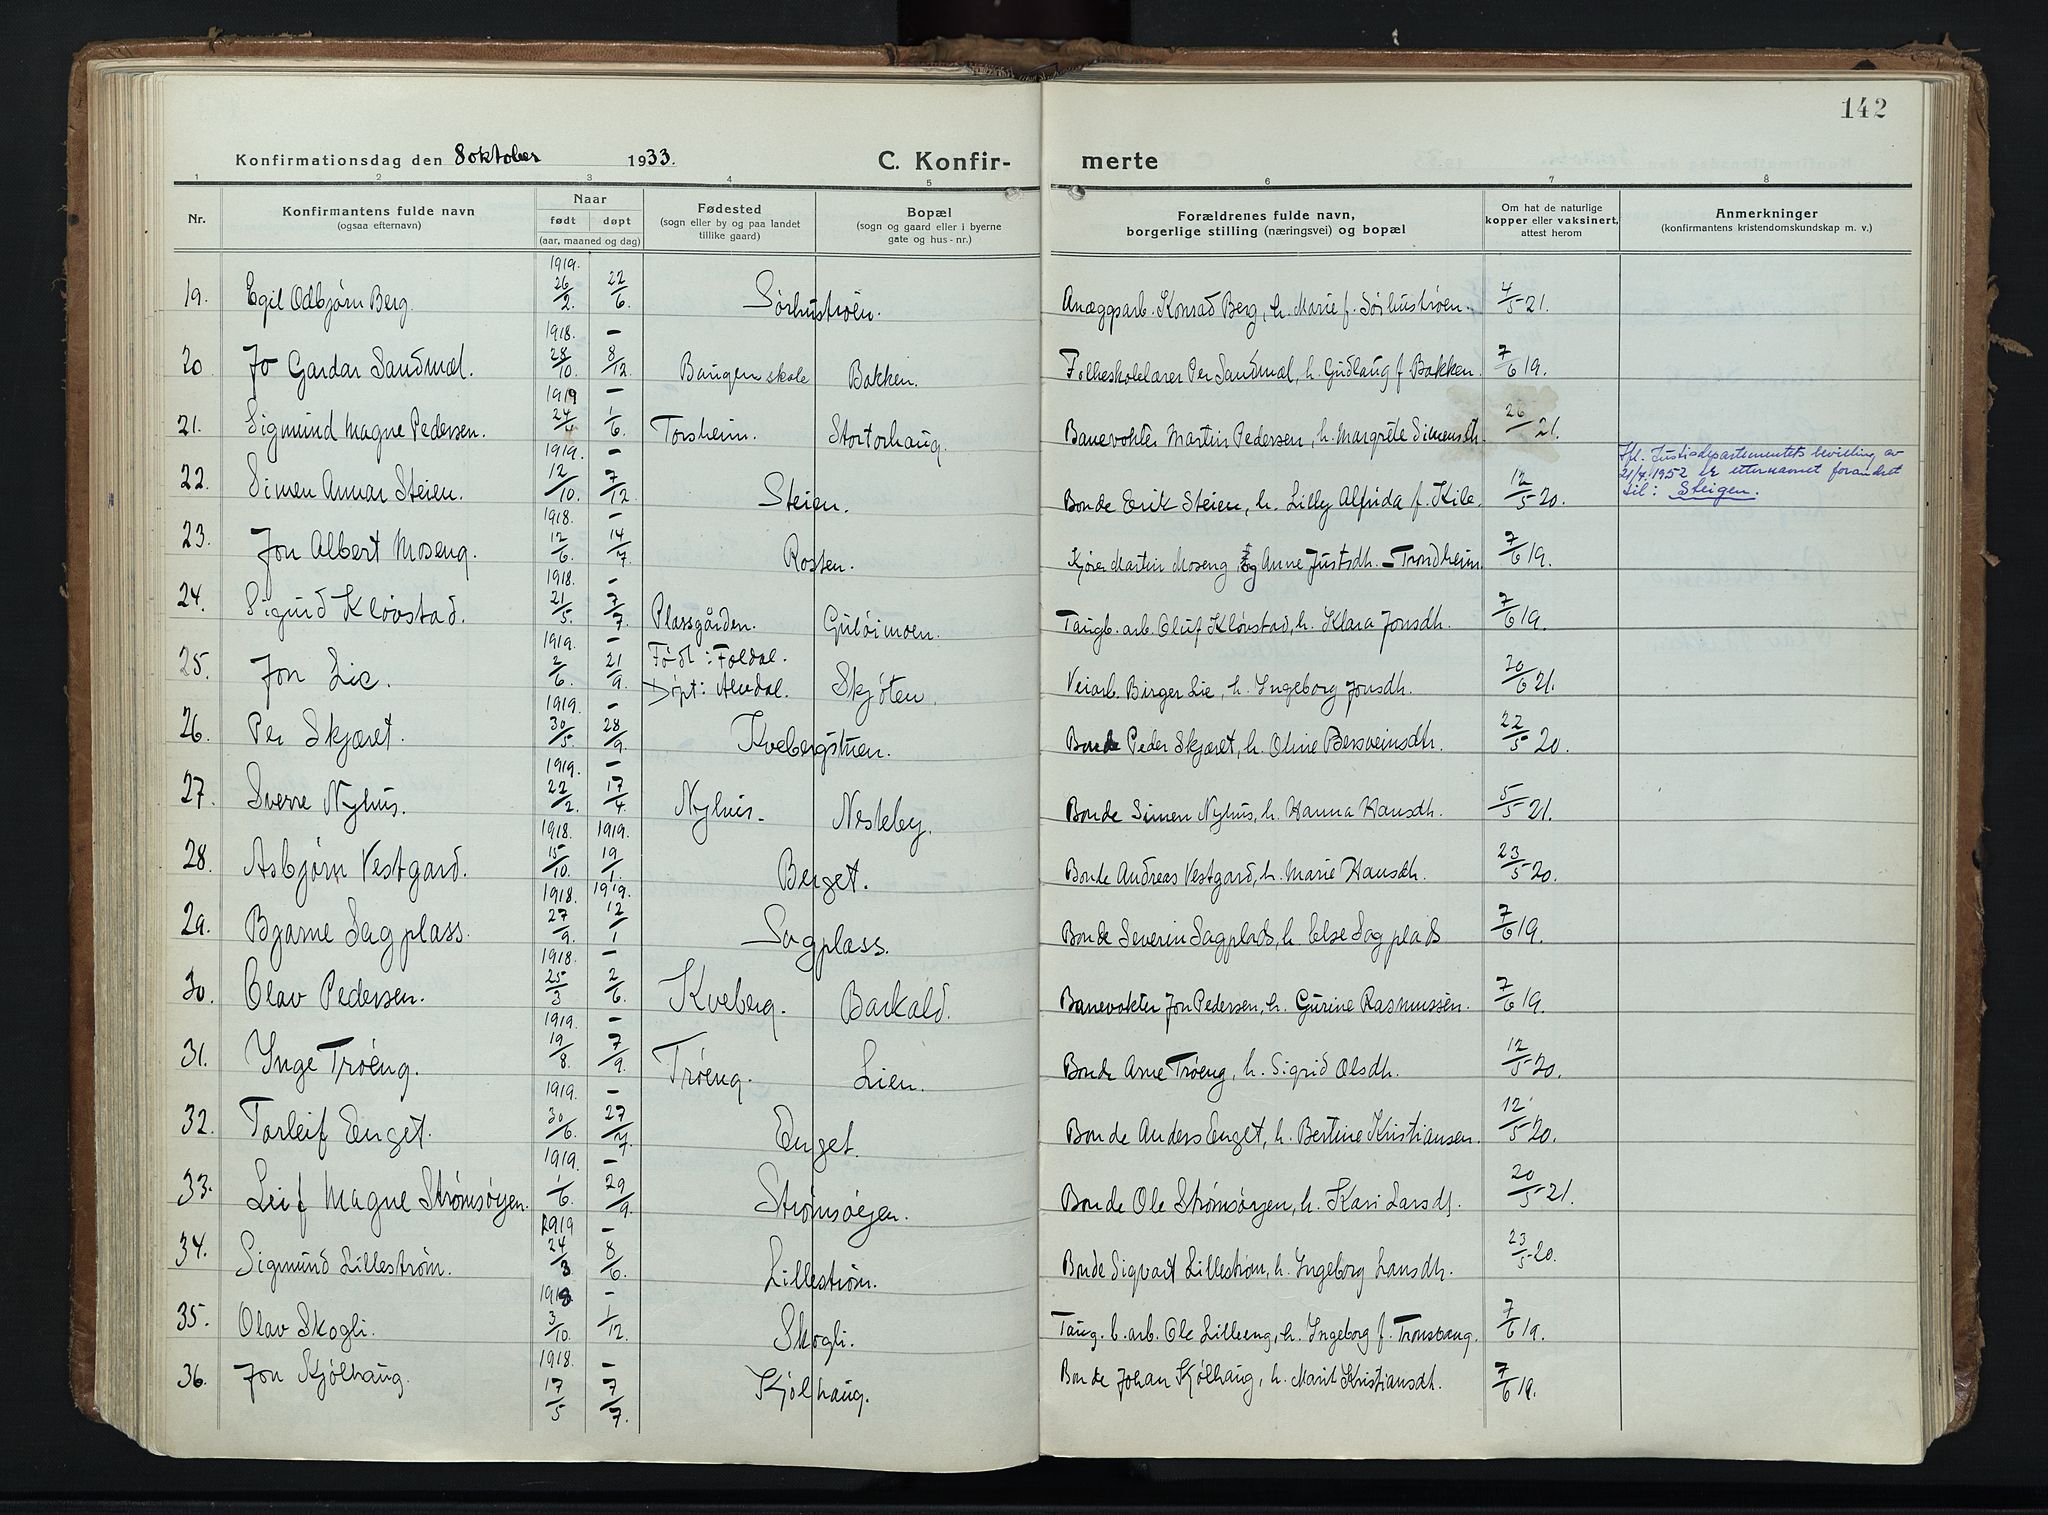 142
Konfirmationsdag den 8 oktober 1933. C. Konfir- merte
1 2 3 4 5 6 7 8
Nr. Konfirmantens fulde navn (ogsaa efternavn) Naar født døpt (aar, maaned og dag) Fødested (sogn eller by og paa landet tillike gaard) Bopæl (sogn og gaard eller i byerne gate og hus-nr.) Forældrenes fulde navn, borgerlige stilling (næringsvei) og bopæl Om hat de naturlige kopper eller vaksinert, attest herom Anmerkninger (konfirmantens kristendomskundskap m. v.)
19. Egil Odbjørn Berg. 1919. 26/2. 22/6. Sørhustrøen. Anæggsarb. Konrad Berg, h. Marie f. Sørhustrøen. 4/5-21.
20 Jo Gardar Sandmæl. 1918. 28/10. – 8/12. Baugen skole Bakken. Folkeskolelærer Per Sandmæl, h. Gudlaug f Bakken. 7/6 19.
21. Sigmund Magne Pedersen. 1919 24/4 – 1/6. Torsheim. Stortorhaug. Banevokter Martin Pedersen, h. Margrete Simensdh. 26/ 21.
22. Simen Annar Steien. 1919. 12/10. – 7/12. Steien. Bonde Erik Steien, h. Lilly Alfrida f. Kile. 12/5 20. Ifl. Justisdepartementets bevilling av 21/4.1952 er etternavnet forandret til: Steigen.
23. Jon Albert Moseng. 1918. 12/6. – 14/7. Rosten. Kjører Martin Moseng, og Anne Justsdh. – Trondheim. 7/6 19.
24. Sigurd Kløvstad. 1918. 21/5. – 7/7. Plassgården. Guløimoen. Taugb. arb. Oluf Kløvstad, h. Klara Jonsdh. 7/6 19.
25. Jon Lie. 1919. 2/6. – 21/9. Født: Foldal. Døpt: Alvdal. Skjøten. Veiarb. Birger Lie, h. Ingeborg Jonsdh. 20/6 21.
26. Per Skjæret. 1919. 30/5. – 28/9. Kvebergstuen. Bonde Peder Skjæret, h. Oline Bersveinsdh. 22/5 20.
27. Sverre Nyhus. 1919. 22/2. – 17/4. Nyhus. Nesteby. Bonde Simen Nyhus, h. Hanna Hansdh. 5/5 21.
28. Asbjørn Vestgard. 1918. 15/10. 1919. 19/1. Berget. Bonde Andreas Vestgard, h. Marie Hansdh. 23/5 20.
29. Bjarne Sagplass. 1918. 27/9. 1919. 12/1 Sagplass. Bonde Severin Sagplads, h. Else Sagplads 7/6 19.
30. Olav Pedersen. 1918. 25/3 – 2/6. Kveberg. Barkald. Banevokter Jon Pedersen, h. Gurine Rasmussen. 7/6 19.
31. Inge Trøeng. 1919. 19/8. – 7/9. Trøeng. Lien. Bonde Arne Trøeng, h. Sigrid Olsdh. 12/5 20.
32. Torleif Enget. 1919. 30/6. – 27/7. Enget. Bonde Anders Enget, h. Bertine Kristiansen. 12/5 20.
33. Leif Magne Strømsøyen. 1919. 1/6. – 29/9. Strømsøyen. Bonde Ole Strømsøyen, h. Kari Larsdh. 20/5-21.
34. Sigmund Lillestrøm. 1919 24/3 – 8/6. Lillestrøm. Bonde Sigvart Lillestrøm, h. Ingeborg Larsdh. 23/5-20.
35. Olav Skogli. 1918 3/10. – 1/12. Skogli. Taug. b. arb. Ole Lilleeng, h. Ingeborg f. Tronshaug. 7/6 19.
36. Jon Kjølhaug. 1918. 17/5 – 7/7. Kjølhaug. Bonde Johan Kjølhaug, h. Marit Kristiansdh. 7/6 19.